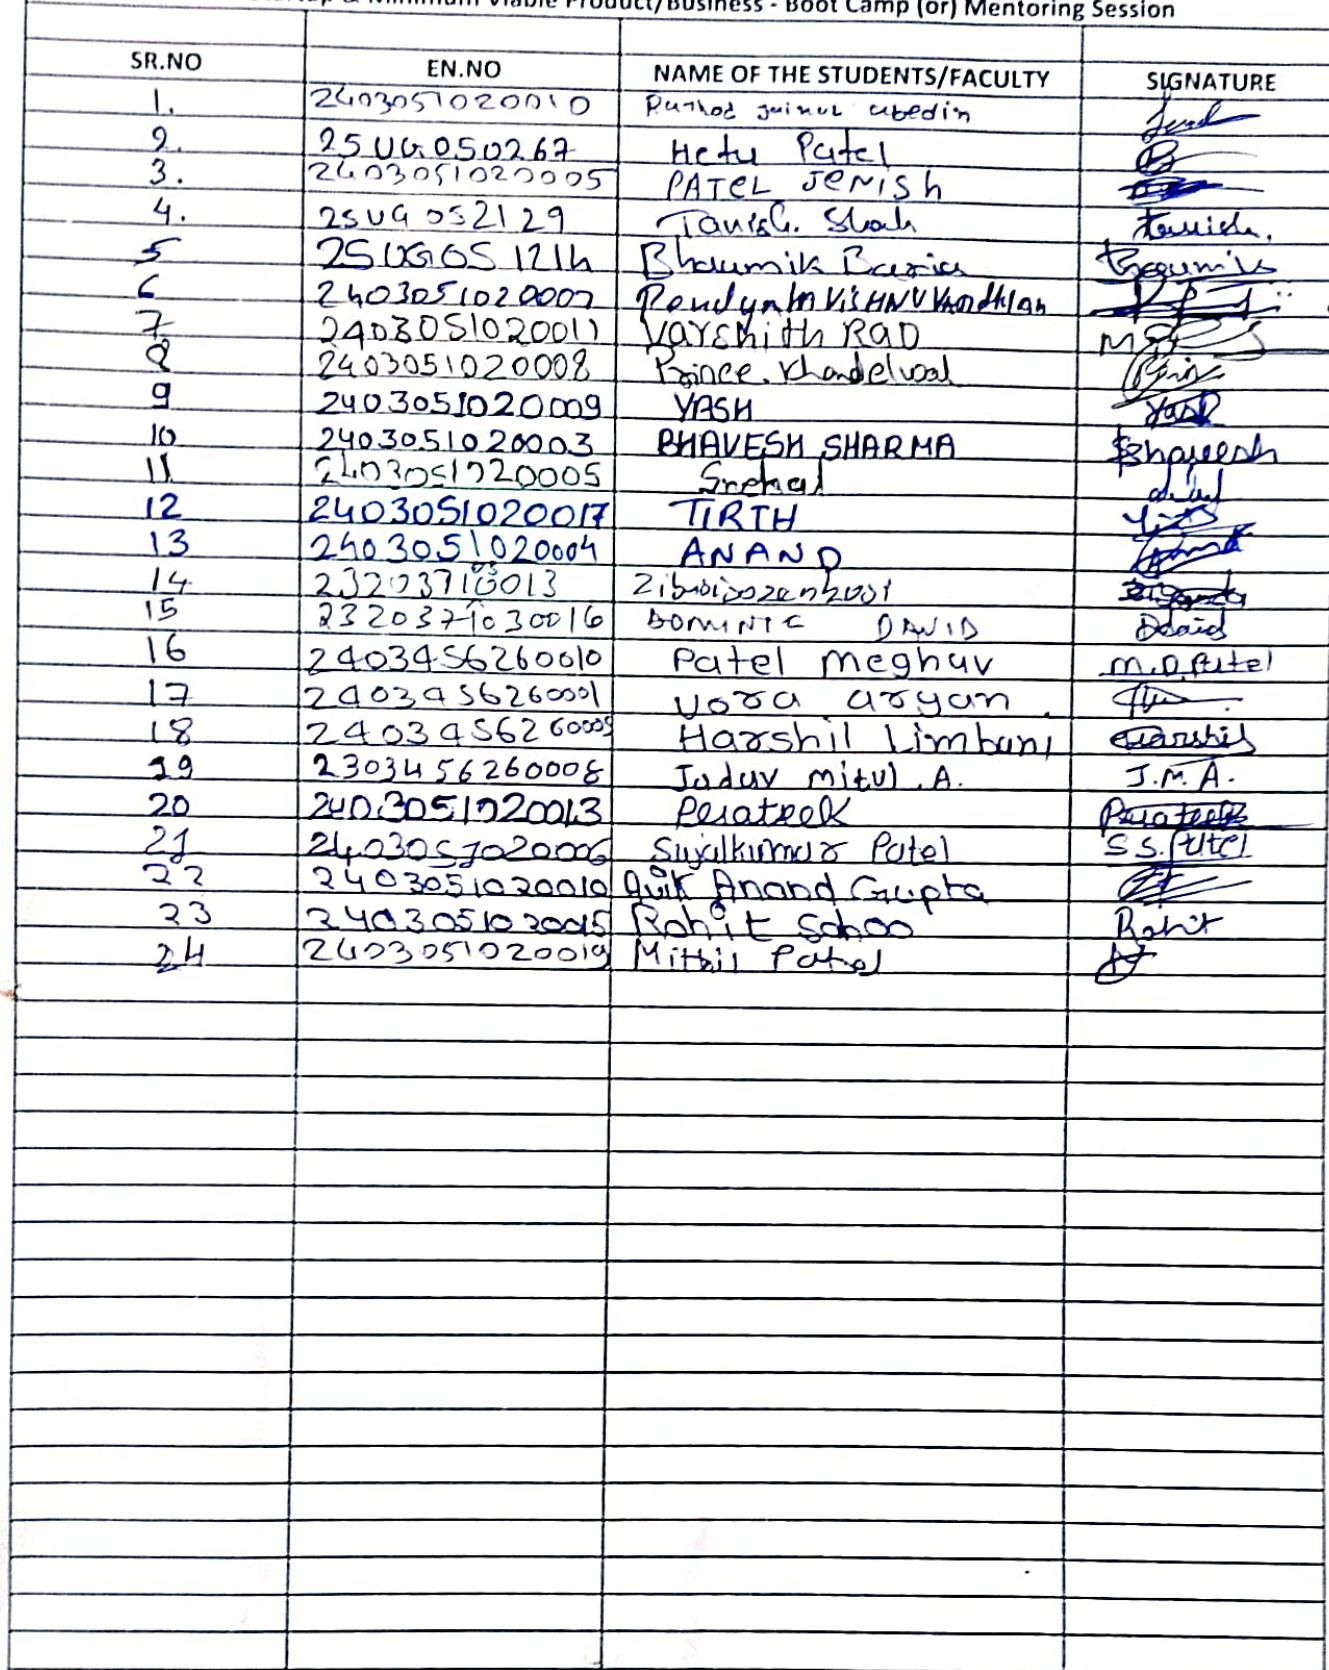 & Minimum Viable Product/Business - Boot Camp (or) Mentoring Session
SR.NO EN.NO NAME OF THE STUDENTS/FACULTY SIGNATURE
1. 2403051020010 jainul abedin
2. 25UG050267 Hetu Patel
3. 2403051020005 PATEL JENISH
4. 25UG052129 Tanish. Shah Tanish.
5 25UG051214 Bhaumik Baria Bhaumik
6 2403051020007 VISHNU
7 2403051020011 VARSHITH RAO
8 2403051020008 Prince. Khandelwal
9 2403051020009 YASH Yash
10 2403051020003 BHAVESH SHARMA Bhavesh
11 2403051020005 Snehal
12 2403051020017 TIRTH
13 2403051020004 ANAND
14
15 2320371030016 DOMINIC DAVID David
16 2403456260010 Patel meghav M.D.Patel
17 2403456260001 vora aryan
18 2403456260005 Harshil Limbani Harshil
19 2303456260008 Jadav mitul .A. J.M.A.
20 2403051020013 Prateek Prateek
21 2403051020006 Sujalkumar Patel S.S.Patel
22 2403051020010 Anand Gupta
23 2403051020015 Rohit Sahoo Rohit
24 2403051020019 Mithil Patel